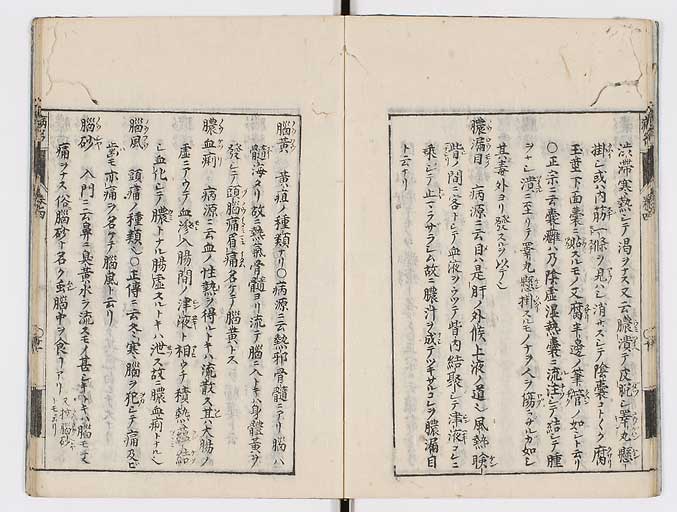 渋滞寒熱シテ渇ヲナス又云膿潰テ皮脱シ睾丸懸
掛シ或ハ内筋一條ヲ見ハシ消サスシテ陰嚢コトコトク腐
玉莖下面囊ニスルモノ又腐半邊ノ筆管ノ如シト云リ
〇正宗ニ云囊癰ハ乃陰虚湿熱囊ニ流注シテ結シテ腫
ヲナシ潰ニ至リテ睾丸懸掛スルモノヲ人ヲ傷ラサルカ如シ
其毒外ヨリ發スルヲツテナリ
膿漏目 病源ニ云目ハ是肝ノ外候上液ノ道シ風熱
眥ノ間ニ客トシテ血液ヲウツテ眥内結聚シテ津液コレニ
乗シテ止マラサラシム故ニ膿汁ヲ成テツキサルコレヲ膿漏目
ト云ナリ
腦黄 黄疸ノ種類ナリ〇病源ニ云熱邪骨髓ニアリ腦ハ
髓海タリ故ニ熱氣骨髓ヨリ流テ腦ニ入トキハ身體黄ヲ
發シテ頭腦痛眉痛名ケテ腦黄トス
膿血痢 病源ニ云血ノ性熱ヲ得ルトキハ流散ス其大腸ノ
虚ニアウテ血滲入腸間ノ津液ト相ウチ積熱蘊結
シ血化シテ膿トナル腸虚スルトキハ泄ス故ニ膿血痢トナル
腦風 頭痛ノ種類〇正傳ニ云冬寒腦ヲ犯シテ痛及
當モ亦痛ヲ名ケテ腦風ト云リ
腦砂 入門ニ云鼻ニ臭黄水ヲ流スモノ甚シキトキハ腦モ又
痛ヲナス俗腦砂ト名ク虫腦中ヲ食フアリ 又控腦砂トモ云リ